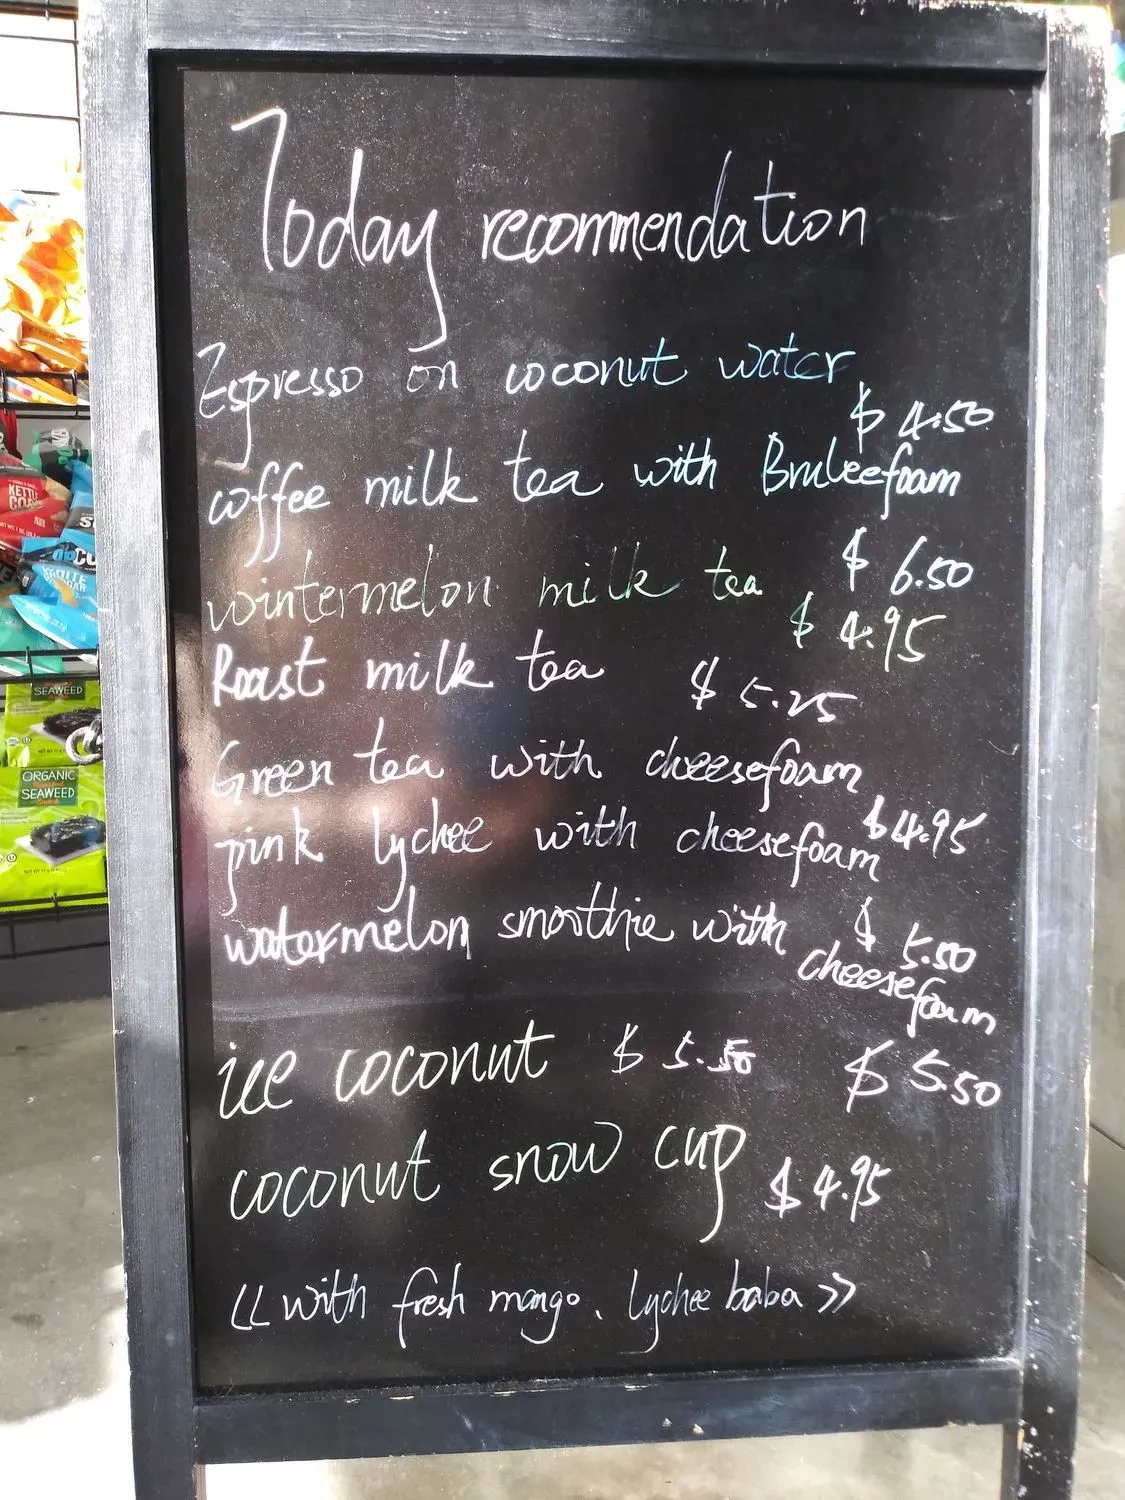 Today recommendation
Espresso on coconut water
$ 4.50
coffee milk tea with Bruleefoam
$ 6.50
wintermelon milk tea
$ 4.95
Roast milk tea $ 5.25
Green tea with cheesefoam
$4.95
pink lychee with cheesefoam
$ 5.50
watermelon smoothie with
cheesefoam
$ 5.50
ice coconut $ 5.50
coconut snow cup $ 4.95
<<with fresh mango、lychee baba>>
KETTLE
SEAWEED
ORGANIC
SEAWEED